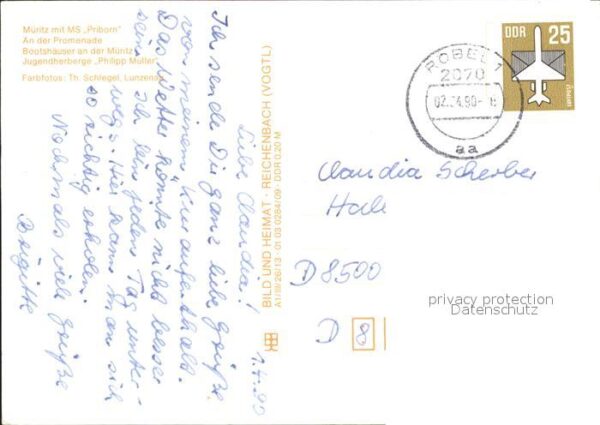 Müritz mit MS „Priborn"
An der Promenade
Bootshäuser an der Müritz
Jugendherberge „Philipp Müller"
Farbfotos: Th. Schlegel, Lunzenau
1.4.90
Liebe Claudia!
Ich sende Dir ganz liebe Grüße
von meinem Kuraufenthalt.
Das Wetter könnte nicht besser
sein. Ich bin jeden Tag unter-
wegs. Hier kann man sich
so richtig erholen.
Nochmals viele Grüße
Brigitte
BILD UND HEIMAT · REICHENBACH (VOGTL)
A1/III/26/13 · 01 03 0284/09 · DDR 0,20 M
DDR 25
RÖBEL 1
2070
02.04.90
aa
Claudia
D 8500
D 8
privacy protection
Datenschutz